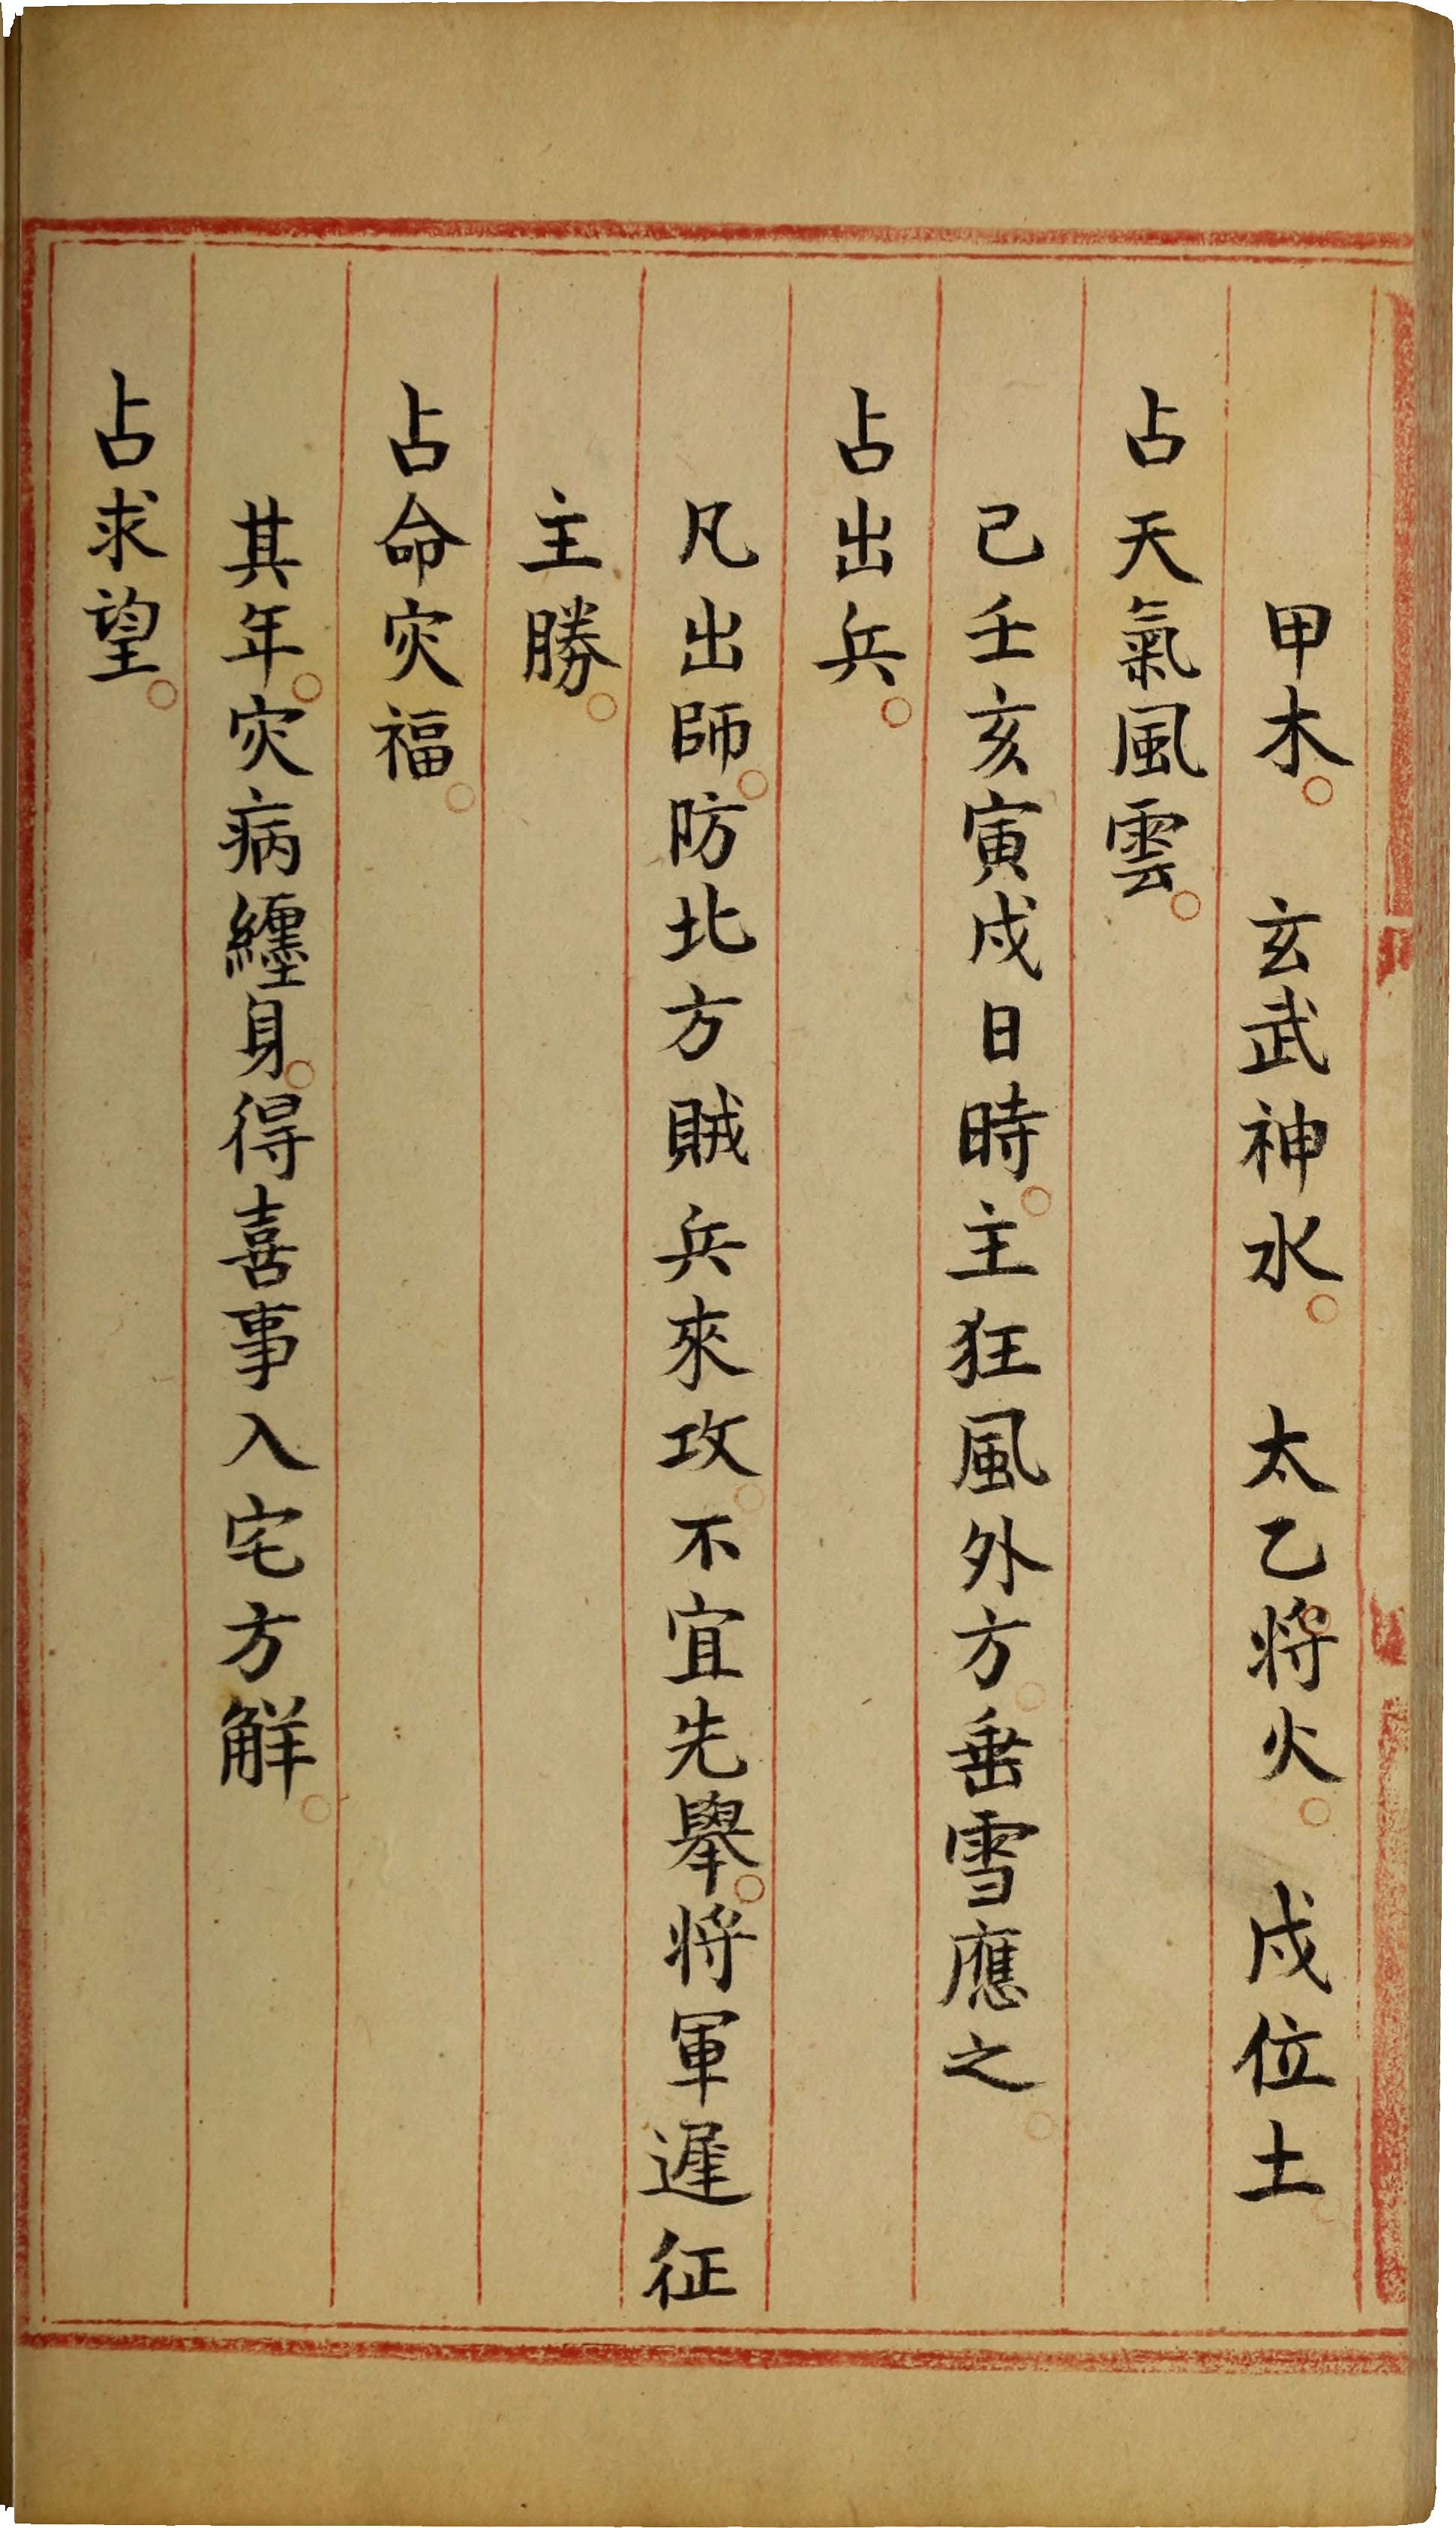 甲木。　玄武神水。　太乙。将火。　戌位土。
占天氣風雲。
己壬亥寅戌日時。主狂風外方。垂雪應之。
占出兵。
凡出師。防北方賊兵來攻。不宜先舉。将軍遲征
主勝。
占命灾福。
其年。灾病纏身。得喜事入宅方解。
占求望。